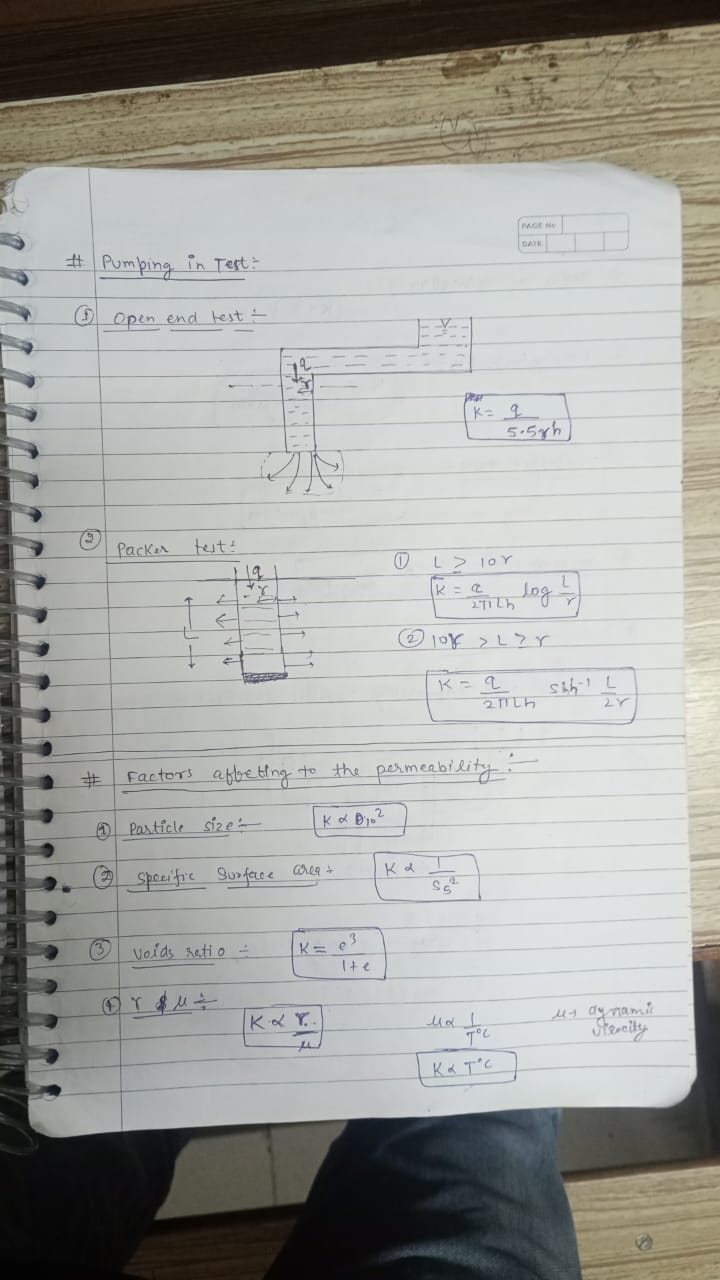 PAGE No
DATE
# Pumping in Test:-
① Open end test :-
q
r
K = q / 5.5rh
② Packer test :-
q
r
L
① L ≥ 10r
K = q / 2πLh log L / r
② 10r > L ≥ r
K = q / 2πLh sinh⁻¹ L / 2r
# Factors affeting to the permeability :-
① Particle size :- K ∝ D₁₀²
② Specific Surface area :- K ∝ 1 / Ss²
③ Voids ratio :- K = e³ / 1+e
④ γ & μ :-
K ∝ γ / μ
μ ∝ 1 / T°C
μ → dynamic
K ∝ T°C